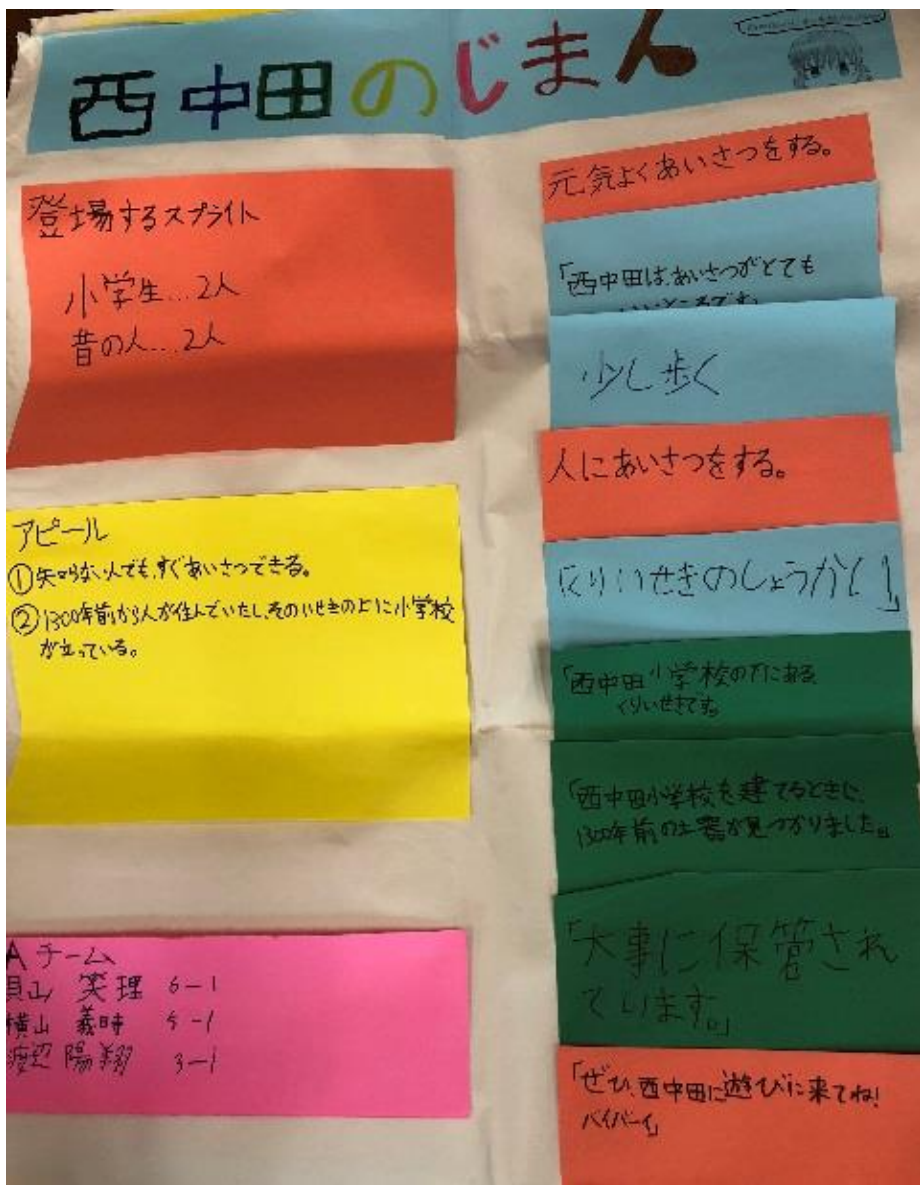 西中田のじまん
登場するスプライト
小学生…2人
昔の人…2人
アピール
①知らない人でも、すぐあいさつできる。
②1300年前から人が住んでいたし、そのいせきの上に小学校
が立っている。
Aチーム
貝山 笑理 6-1
横山 義時 5-1
渡辺 陽翔 3-1
元気よくあいさつをする。
「西中田は、あいさつがとても
いいところです」
少し歩く
人にあいさつをする。
「くりいせきのしょうかい」
「西中田小学校の下にある
くりいせきです。
「西中田小学校を建てるときに、
1300年前の土器が見つかりました。」
「大事に保管され
ています。」
「ぜひ、西中田に遊びに来てね!
バイバーイ」